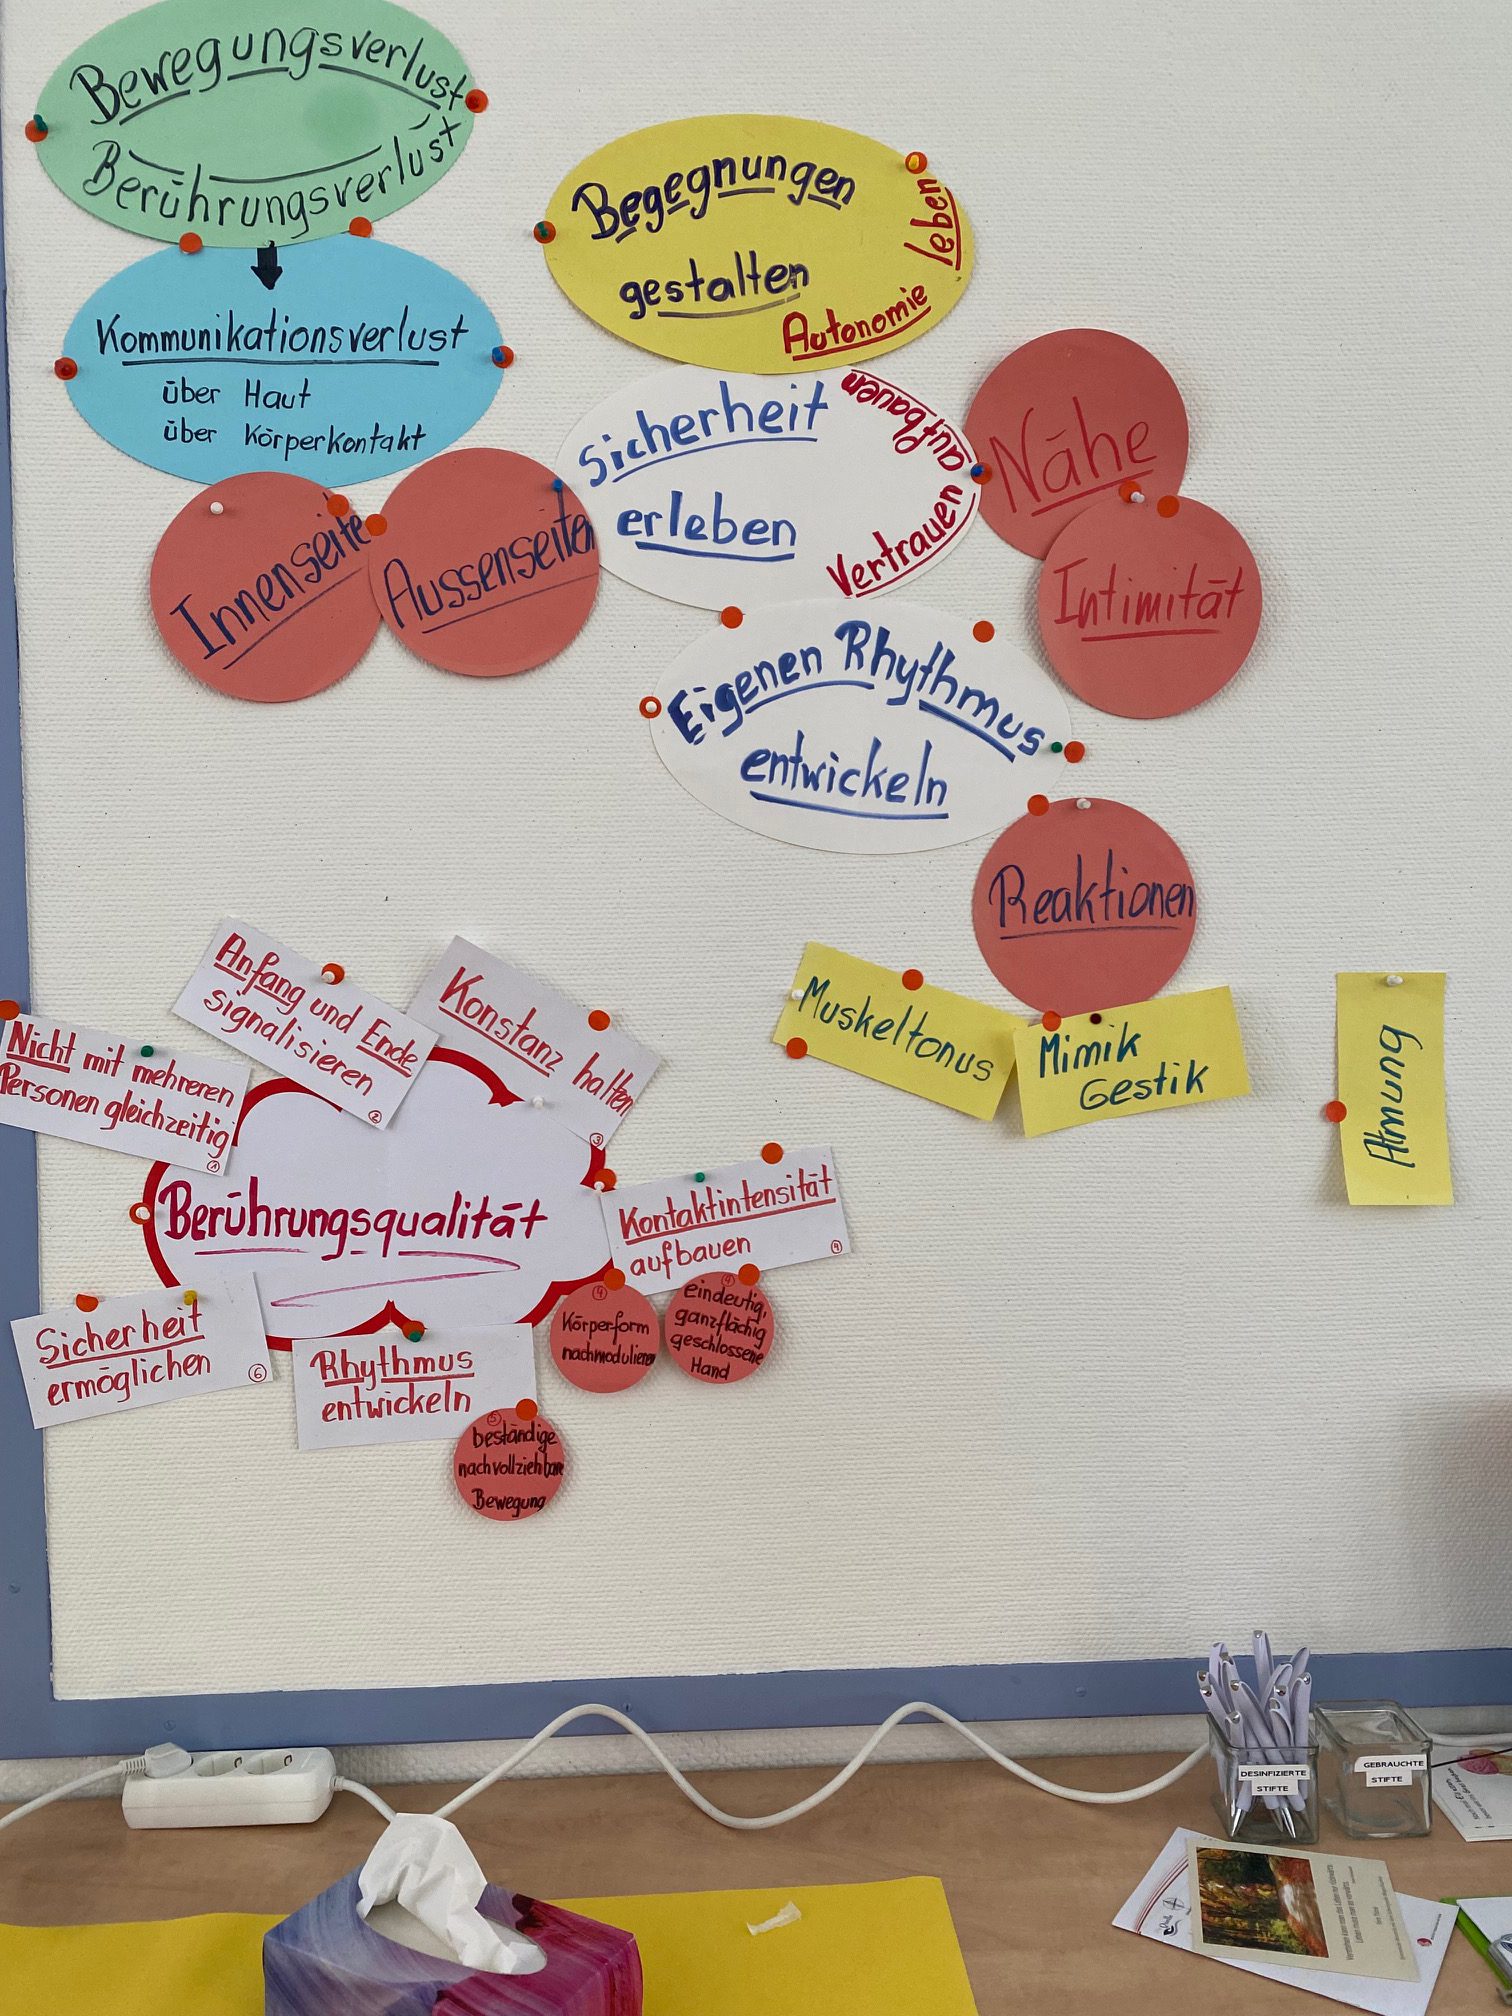 Bewegungsverlust
Berührungsverlust
Kommunikationsverlust
über Haut
über Körperkontakt
Innenseite
Aussenseiten
Begegnungen
gestalten
Autonomie
leben
Sicherheit
erleben
Vertrauen
aufbauen
Nähe
Intimität
Eigenen Rhythmus
entwickeln
Reaktionen
Muskeltonus
Mimik
Gestik
Atmung
Berührungsqualität
Nicht mit mehreren
Personen gleichzeitig
1
Anfang und Ende
signalisieren
2
Konstanz halten
3
Kontaktintensität
aufbauen
4
4
Körperform
nachmodulieren
4
eindeutig,
ganzflächig
geschlossene
Hand
Rhythmus
entwickeln
5
beständige
nachvollziehbare
Bewegung
Sicherheit
ermöglichen
6
DESINFIZIERTE
STIFTE
GEBRAUCHTE
STIFTE